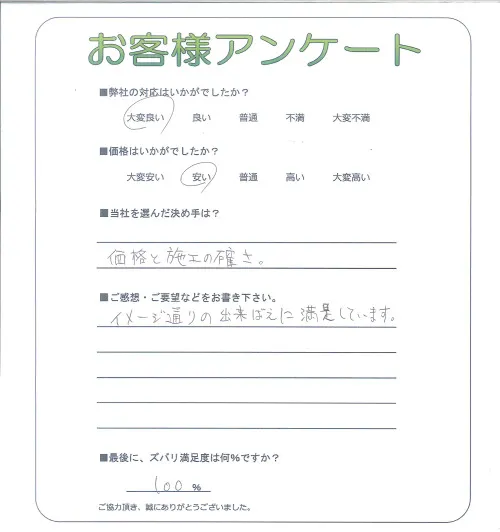 お客様アンケート
■弊社の対応はいかがでしたか？
大変良い 良い 普通 不満 大変不満
■価格はいかがでしたか？
大変安い 安い 普通 高い 大変高い
■当社を選んだ決め手は？
価格と施工の確さ。
■ご感想・ご要望などをお書き下さい。
イメージ通りの出来ばえに満足しています。
■最後に、ズバリ満足度は何%ですか？
100 %
ご協力頂き、誠にありがとうございました。